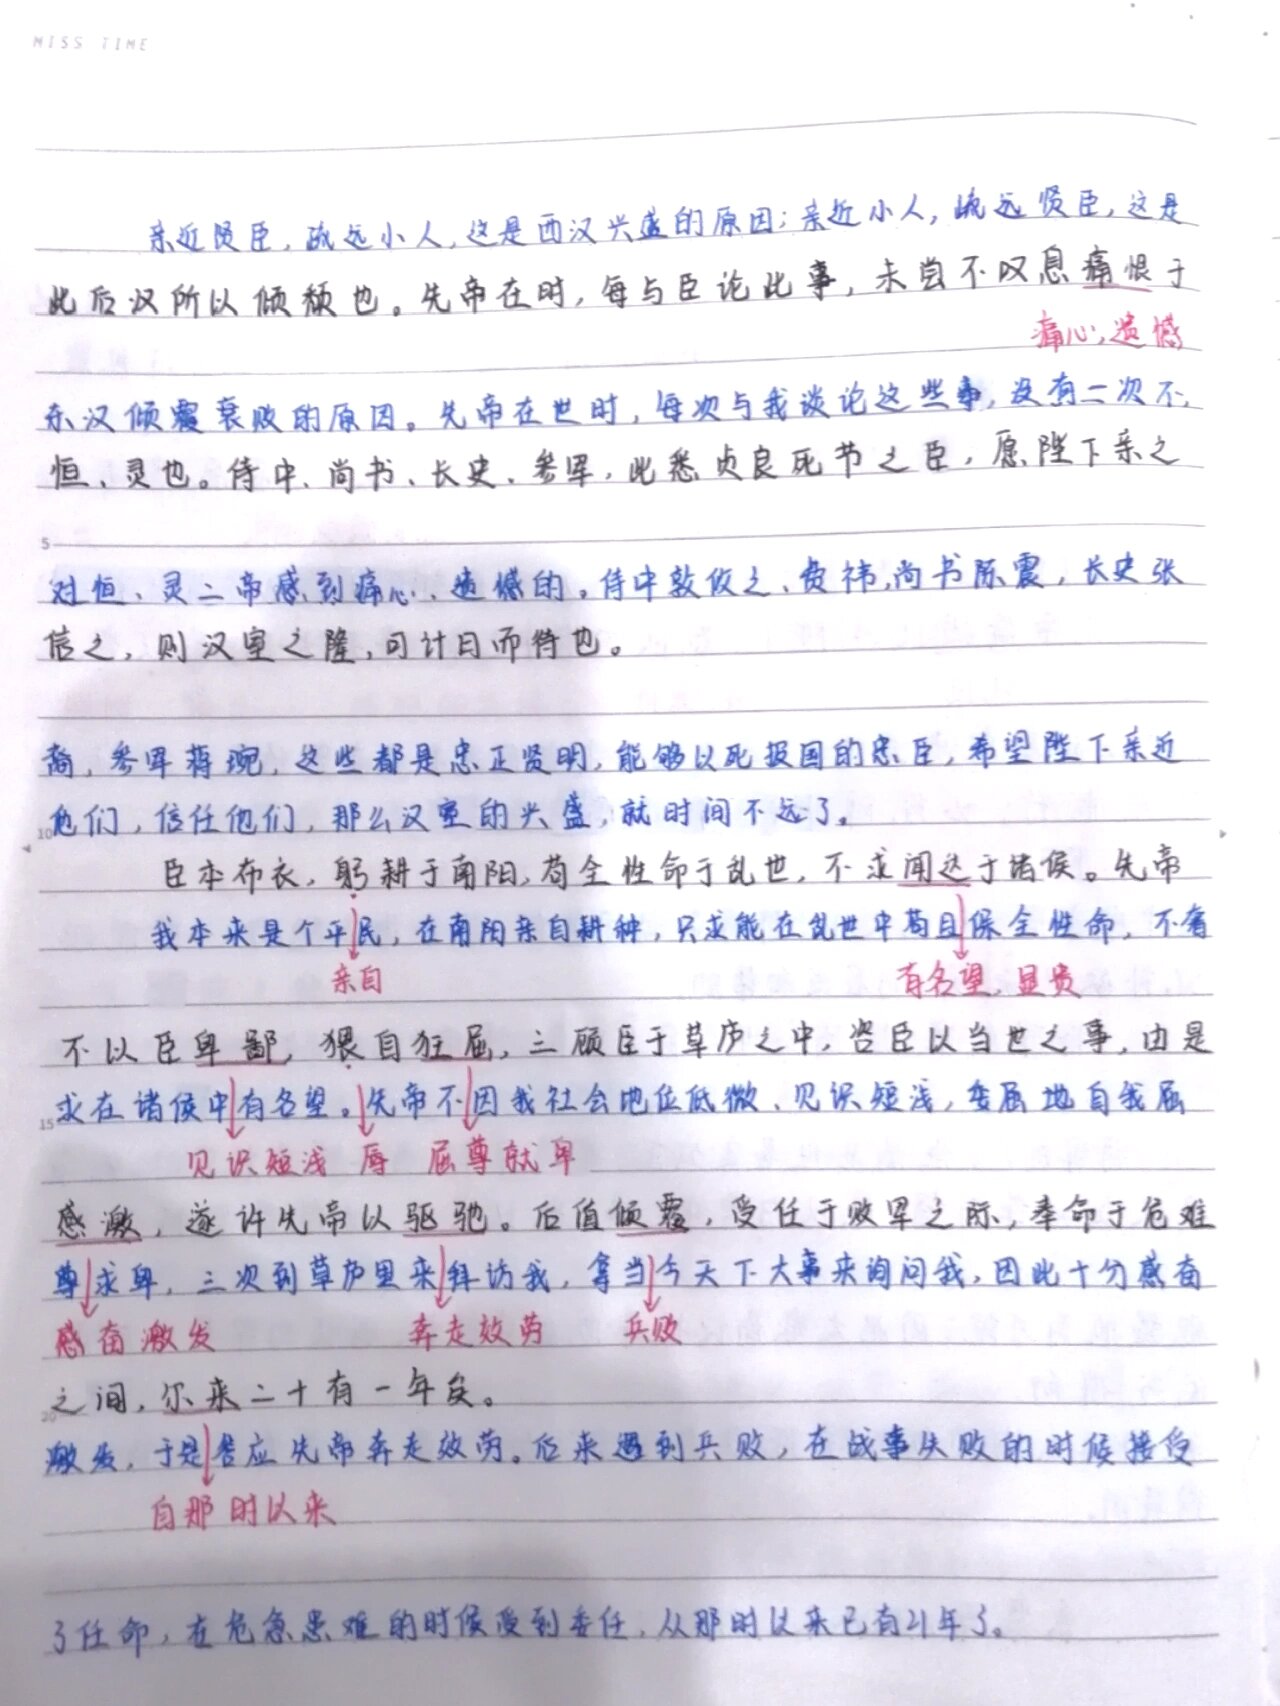 MISS TIME
亲近贤臣，疏远小人，这是西汉兴盛的原因；亲近小人，疏远贤臣，这是
此后汉所以倾颓也。先帝在时，每与臣论此事，未尝不叹息痛恨于
痛心，遗憾
东汉倾覆衰败的原因。先帝在世时，每次与我谈论这些事，没有一次不
恒、灵也。侍中、尚书、长史、参军，此悉贞良死节之臣，愿陛下亲之
5
对恒、灵二帝感到痛心、遗憾的。侍中敦攸之、费祎，尚书陈震，长史张
信之，则汉室之隆，可计日而待也。
裔，参军蒋琬，这些都是忠正贤明，能够以死报国的忠臣，希望陛下亲近
10 他们，信任他们，那么汉室的兴盛，就时间不远了。
臣本布衣，躬耕于南阳，苟全性命于乱世，不求闻达于诸侯。先帝
我本来是个平民，在南阳亲自耕种，只求能在乱世中苟且保全性命，不奢
亲自 有名望，显贵
不以臣卑鄙，猥自狂屈，三顾臣于草庐之中，咨臣以当世之事，由是
15 求在诸侯中有名望。先帝不因我社会地位低微、见识短浅，委屈地自我屈
见识短浅 辱 屈尊就卑
感激，遂许先帝以驱驰。后值倾覆，受任于败军之际，奉命于危难
尊求卑，三次到草庐里来拜访我，拿当今天下大事来询问我，因此十分感奋
感奋激发 奔走效劳 兵败
之间，尔来二十有一年矣。
20
激发，于是答应先帝奔走效劳。后来遇到兵败，在战事失败的时候接受
自那时以来
了任命，在危急患难的时候受到委任，从那时以来已有21年了。